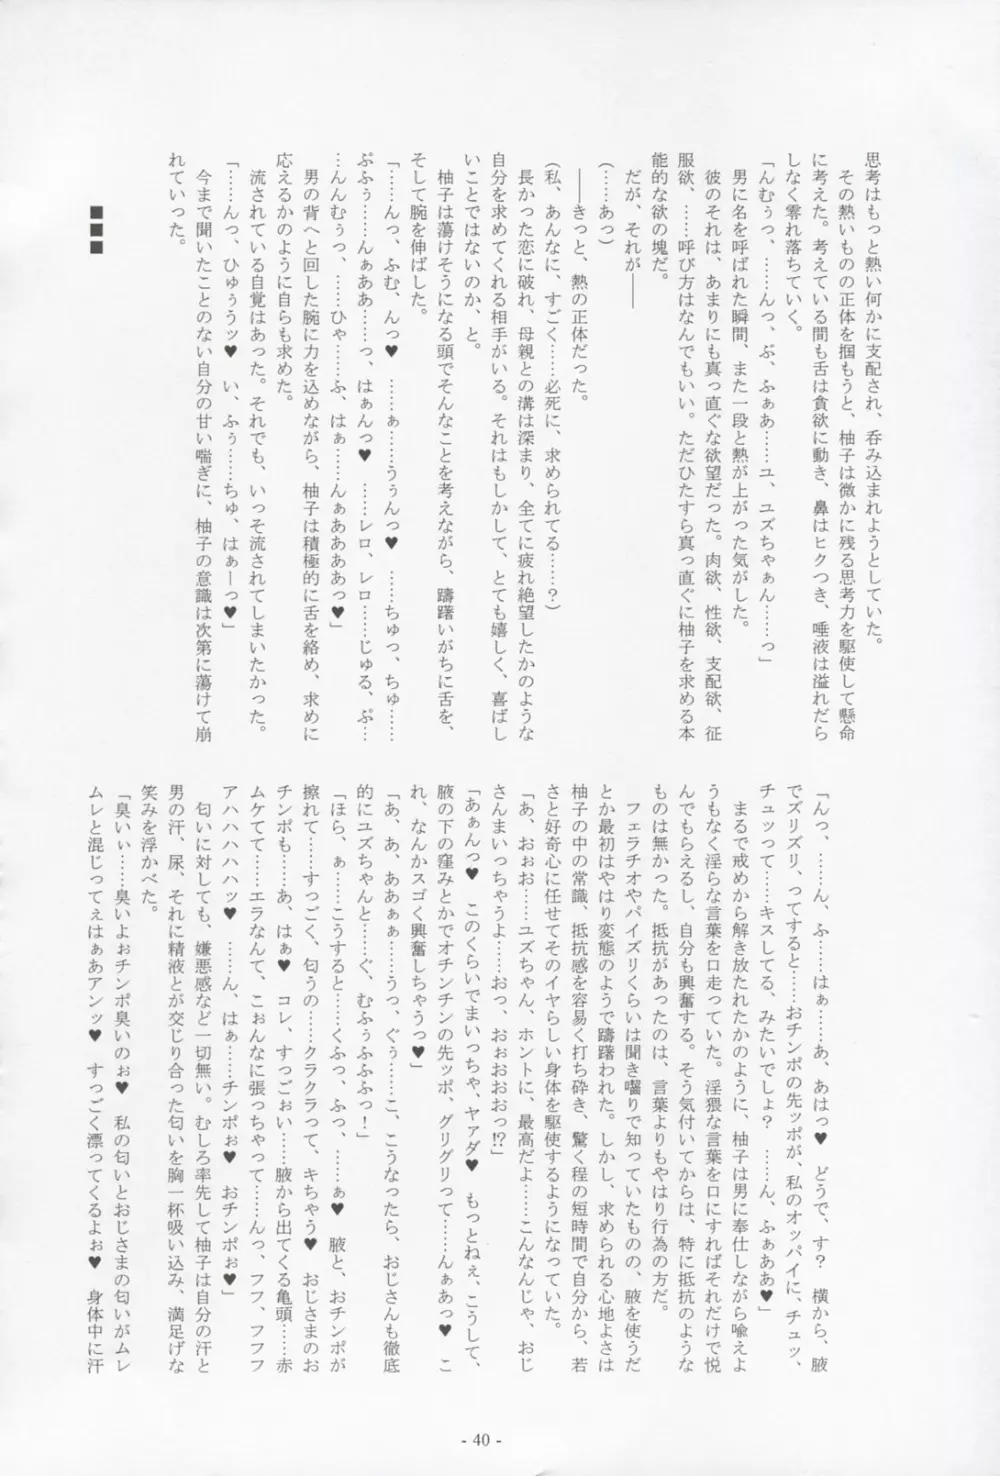 思考はもっと熱い何かに支配され、呑み込まれようとしていた。
その熱いものの正体を掴もうと、柚子は微かに残る思考力を駆使して懸命
に考えた。考えている間も舌は貪欲に動き、鼻はヒクつき、唾液は溢れだら
しなく零れ落ちていく。
「んむぅっ、……んっ、ぷ、ふぁあ……ユ、ユズちゃぁん……っ」
男に名を呼ばれた瞬間、また一段と熱が上がった気がした。
彼のそれは、あまりにも真っ直ぐな欲望だった。肉欲、性欲、支配欲、征
服欲、……呼び方はなんでもいい。ただひたすら真っ直ぐに柚子を求める本
能的な欲の塊だ。
だが、それが――
(……あっ)
――きっと、熱の正体だった。
(私、あんなに、すごく……必死に、求められてる……?)
長かった恋に破れ、母親との溝は深まり、全てに疲れ絶望したかのような
自分を求めてくれる相手がいる。それはもしかして、とても嬉しく、喜ばし
いことではないのか、と。
柚子は蕩けそうになる頭でそんなことを考えながら、躊躇いがちに舌を、
そして腕を伸ばした。
「……んっ、ふむ、んっ♥ ……ぁ……うぅんっ♥ ……ちゅっ、ちゅ……
ぷふぅ……んぁああ……っ、はぁんっ♥ ……レロ、レロ……じゅる、ぷ…
…んんむぅっ、……ひゃ……ふ、はぁ……んぁああああっ♥」
男の背へと回した腕に力を込めながら、柚子は積極的に舌を絡め、求めに
応えるかのように自らも求めた。
流されている自覚はあった。それでも、いっそ流されてしまいたかった。
「……んっ、ひゅぅうッ♥ い、ふぅ……ちゅ、はぁーっ♥」
今まで聞いたことのない自分の甘い喘ぎに、柚子の意識は次第に蕩けて崩
れていった。
■■■
「んっ、……ん、ふ……はぁ……あ、あはっ♥ どうで、す? 横から、腋
でズリズリ、ってすると……おチンポの先ッポが、私のオッパイに、チュッ、
チュッって……キスしてる、みたいでしょ? ……ん、ふぁああ♥」
まるで戒めから解き放たれたかのように、柚子は男に奉仕しながら喩えよ
うもなく淫らな言葉を口走っていた。淫猥な言葉を口にすればそれだけで悦
んでもらえるし、自分も興奮する。そう気付いてからは、特に抵抗のような
ものは無かった。抵抗があったのは、言葉よりもやはり行為の方だ。
フェラチオやパイズリくらいは聞き囓りで知っていたものの、腋を使うだ
とか最初はやはり変態のようで躊躇われた。しかし、求められる心地よさは
柚子の中の常識、抵抗感を容易く打ち砕き、驚く程の短時間で自分から、若
さと好奇心に任せてそのイヤらしい身体を駆使するようになっていた。
「あ、おぉお……ユズちゃん、ホントに、最高だよ……こんなんじゃ、おじ
さんまいっちゃうよ……おっ、おぉおおおっ!?」
「あぁんっ♥ このくらいでまいっちゃ、ヤァダ♥ もっとねぇ、こうして、
腋の下の窪みとかでオチンチンの先ッポ、グリグリって……んぁあっ♥ こ
れ、なんかスゴく興奮しちゃうっ♥」
「あ、あ、ああぁぁ……うっ、ぐぅ……こ、こうなったら、おじさんも徹底
的にユズちゃんと……ぐ、むふぅふふふっ!」
「ほら、ぁ……こうすると……くふっ、ふっ、……ぁ♥ 腋と、おチンポが
擦れて……すっごく、匂うの……クラクラって、キちゃう♥ おじさまのお
チンポも……あ、はぁ♥ コレ、すっごぉい……腋から出てくる亀頭……赤
ムケてて……エラなんて、こぉんなに張っちゃって……んっ、フフ、フフフ
アハハハハハッ♥ ……ん、はぁ……チンポぉ♥ おチンポぉ♥」
匂いに対しても、嫌悪感など一切無い。むしろ率先して柚子は自分の汗と
男の汗、尿、それに精液とが交じり合った匂いを胸一杯吸い込み、満足げな
笑みを浮かべた。
「臭いぃ……臭いよぉチンポ臭いのぉ♥ 私の匂いとおじさまの匂いがムレ
ムレと混じってえはぁあアンッ♥ すっごく漂ってくるよぉ♥ 身体中に汗
- 40 -